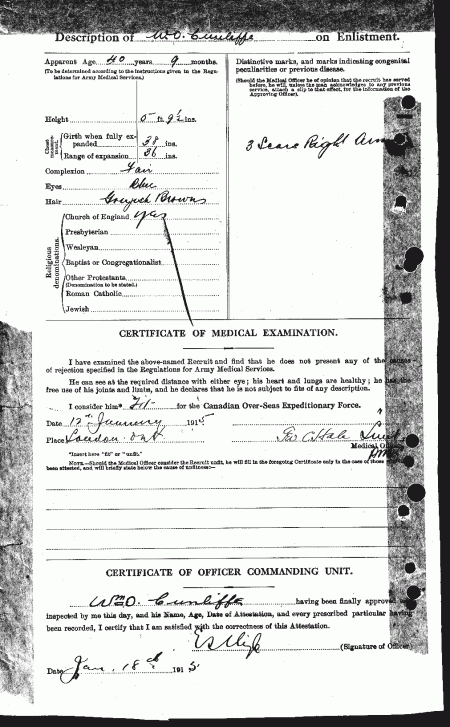 Description of Wm O. Cunliffe on Enlistment.
Apparent Age 40 years 9 months.
(To be determined according to the instructions given in the Regulations for Army Medical Services.)
Distinctive marks, and marks indicating congenital
peculiarities or previous disease.
(Should the Medical Officer be of opinion that the recruit has served
before, he will, unless the man acknowledges to any previous
service, attach a slip to that effect, for the information of the
Approving Officer).
Height 5 ft. 9½ ins.
Chest measurement.
Girth when fully expanded 38 ins.
Range of expansion 36 ins.
3 Scars Right Arm
Complexion Fair
Eyes Blue
Hair Greyish Brown
Religious denominations.
Church of England yes
Presbyterian
Wesleyan
Baptist or Congregationalist
Other Protestants
(Denomination to be stated.)
Roman Catholic
Jewish
CERTIFICATE OF MEDICAL EXAMINATION.
I have examined the above-named Recruit and find that he does not present any of the causes
of rejection specified in the Regulations for Army Medical Services.
He can see at the required distance with either eye; his heart and lungs are healthy; he has the
free use of his joints and limbs, and he declares that he is not subject to fits of any description.
I consider him* Fit for the Canadian Over-Seas Expeditionary Force.
Date 12th January 1915
Place London Ont
Medical Officer
*Insert here "fit" or "unfit."
NOTE.—Should the Medical Officer consider the Recruit unfit, he will fill in the foregoing Certificate only in the case of those
been attested, and will briefly state below the cause of unfitness:—
CERTIFICATE OF OFFICER COMMANDING UNIT.
Wm O. Cunliffe having been finally approved
inspected by me this day, and his Name, Age, Date of Attestation, and every prescribed particular having
been recorded, I certify that I am satisfied with the correctness of this Attestation.
(Signature of Officer)
Date Jan. 18th 1915